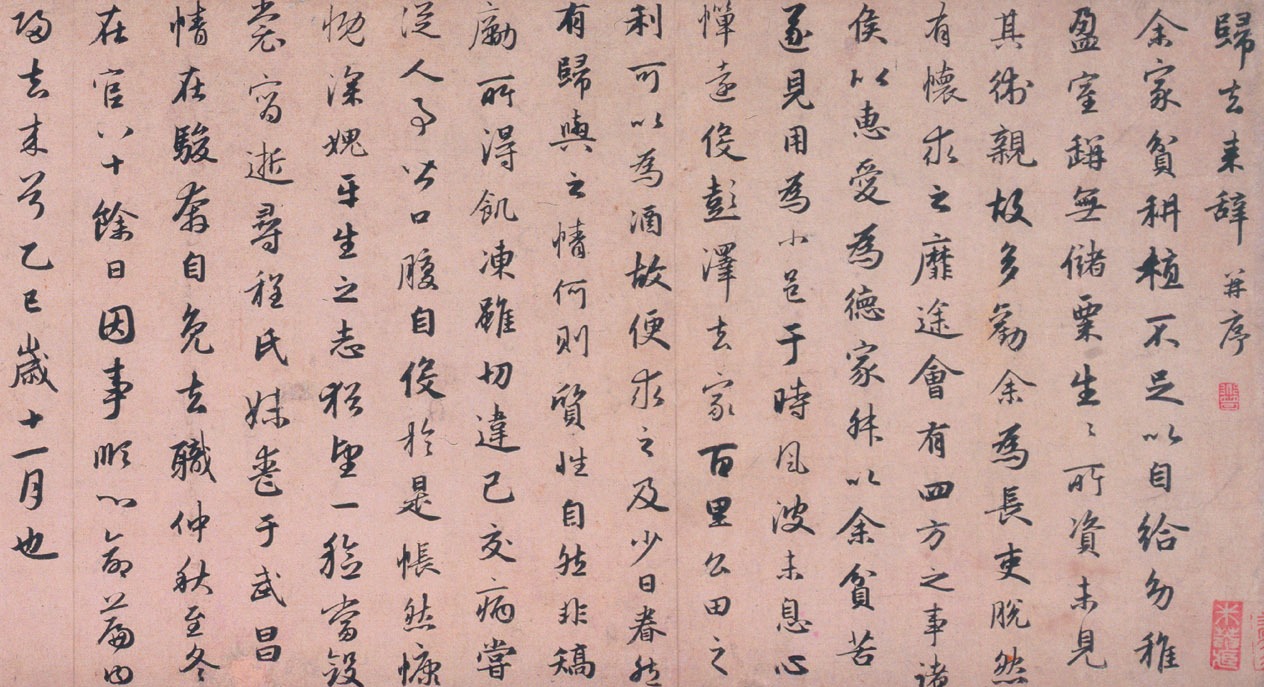 歸去来辭 并序
余家貧耕植不足以自給幼稚
盈室缾無儲粟生〻所資未見
其術親故多勸余為長吏脫然
有懷求之靡途會有四方之事諸
侯以惠愛為德家叔以余貧苦
遂見用為小邑于時風波未息心
憚遠役彭澤去家百里公田之
利可以為酒故便求之及少日眷然
有歸與之情何則質性自然非矯
勵所得飢凍雖切違己交病嘗
從人事皆口腹自役於是悵然慷
慨深媿平生之志猶望一稔當斂
裳宵逝尋程氏妹喪于武昌
情在駿奔自免去職仲秋至冬
在官八十餘日因事順心命篇曰
歸去来兮乙巳歲十一月也